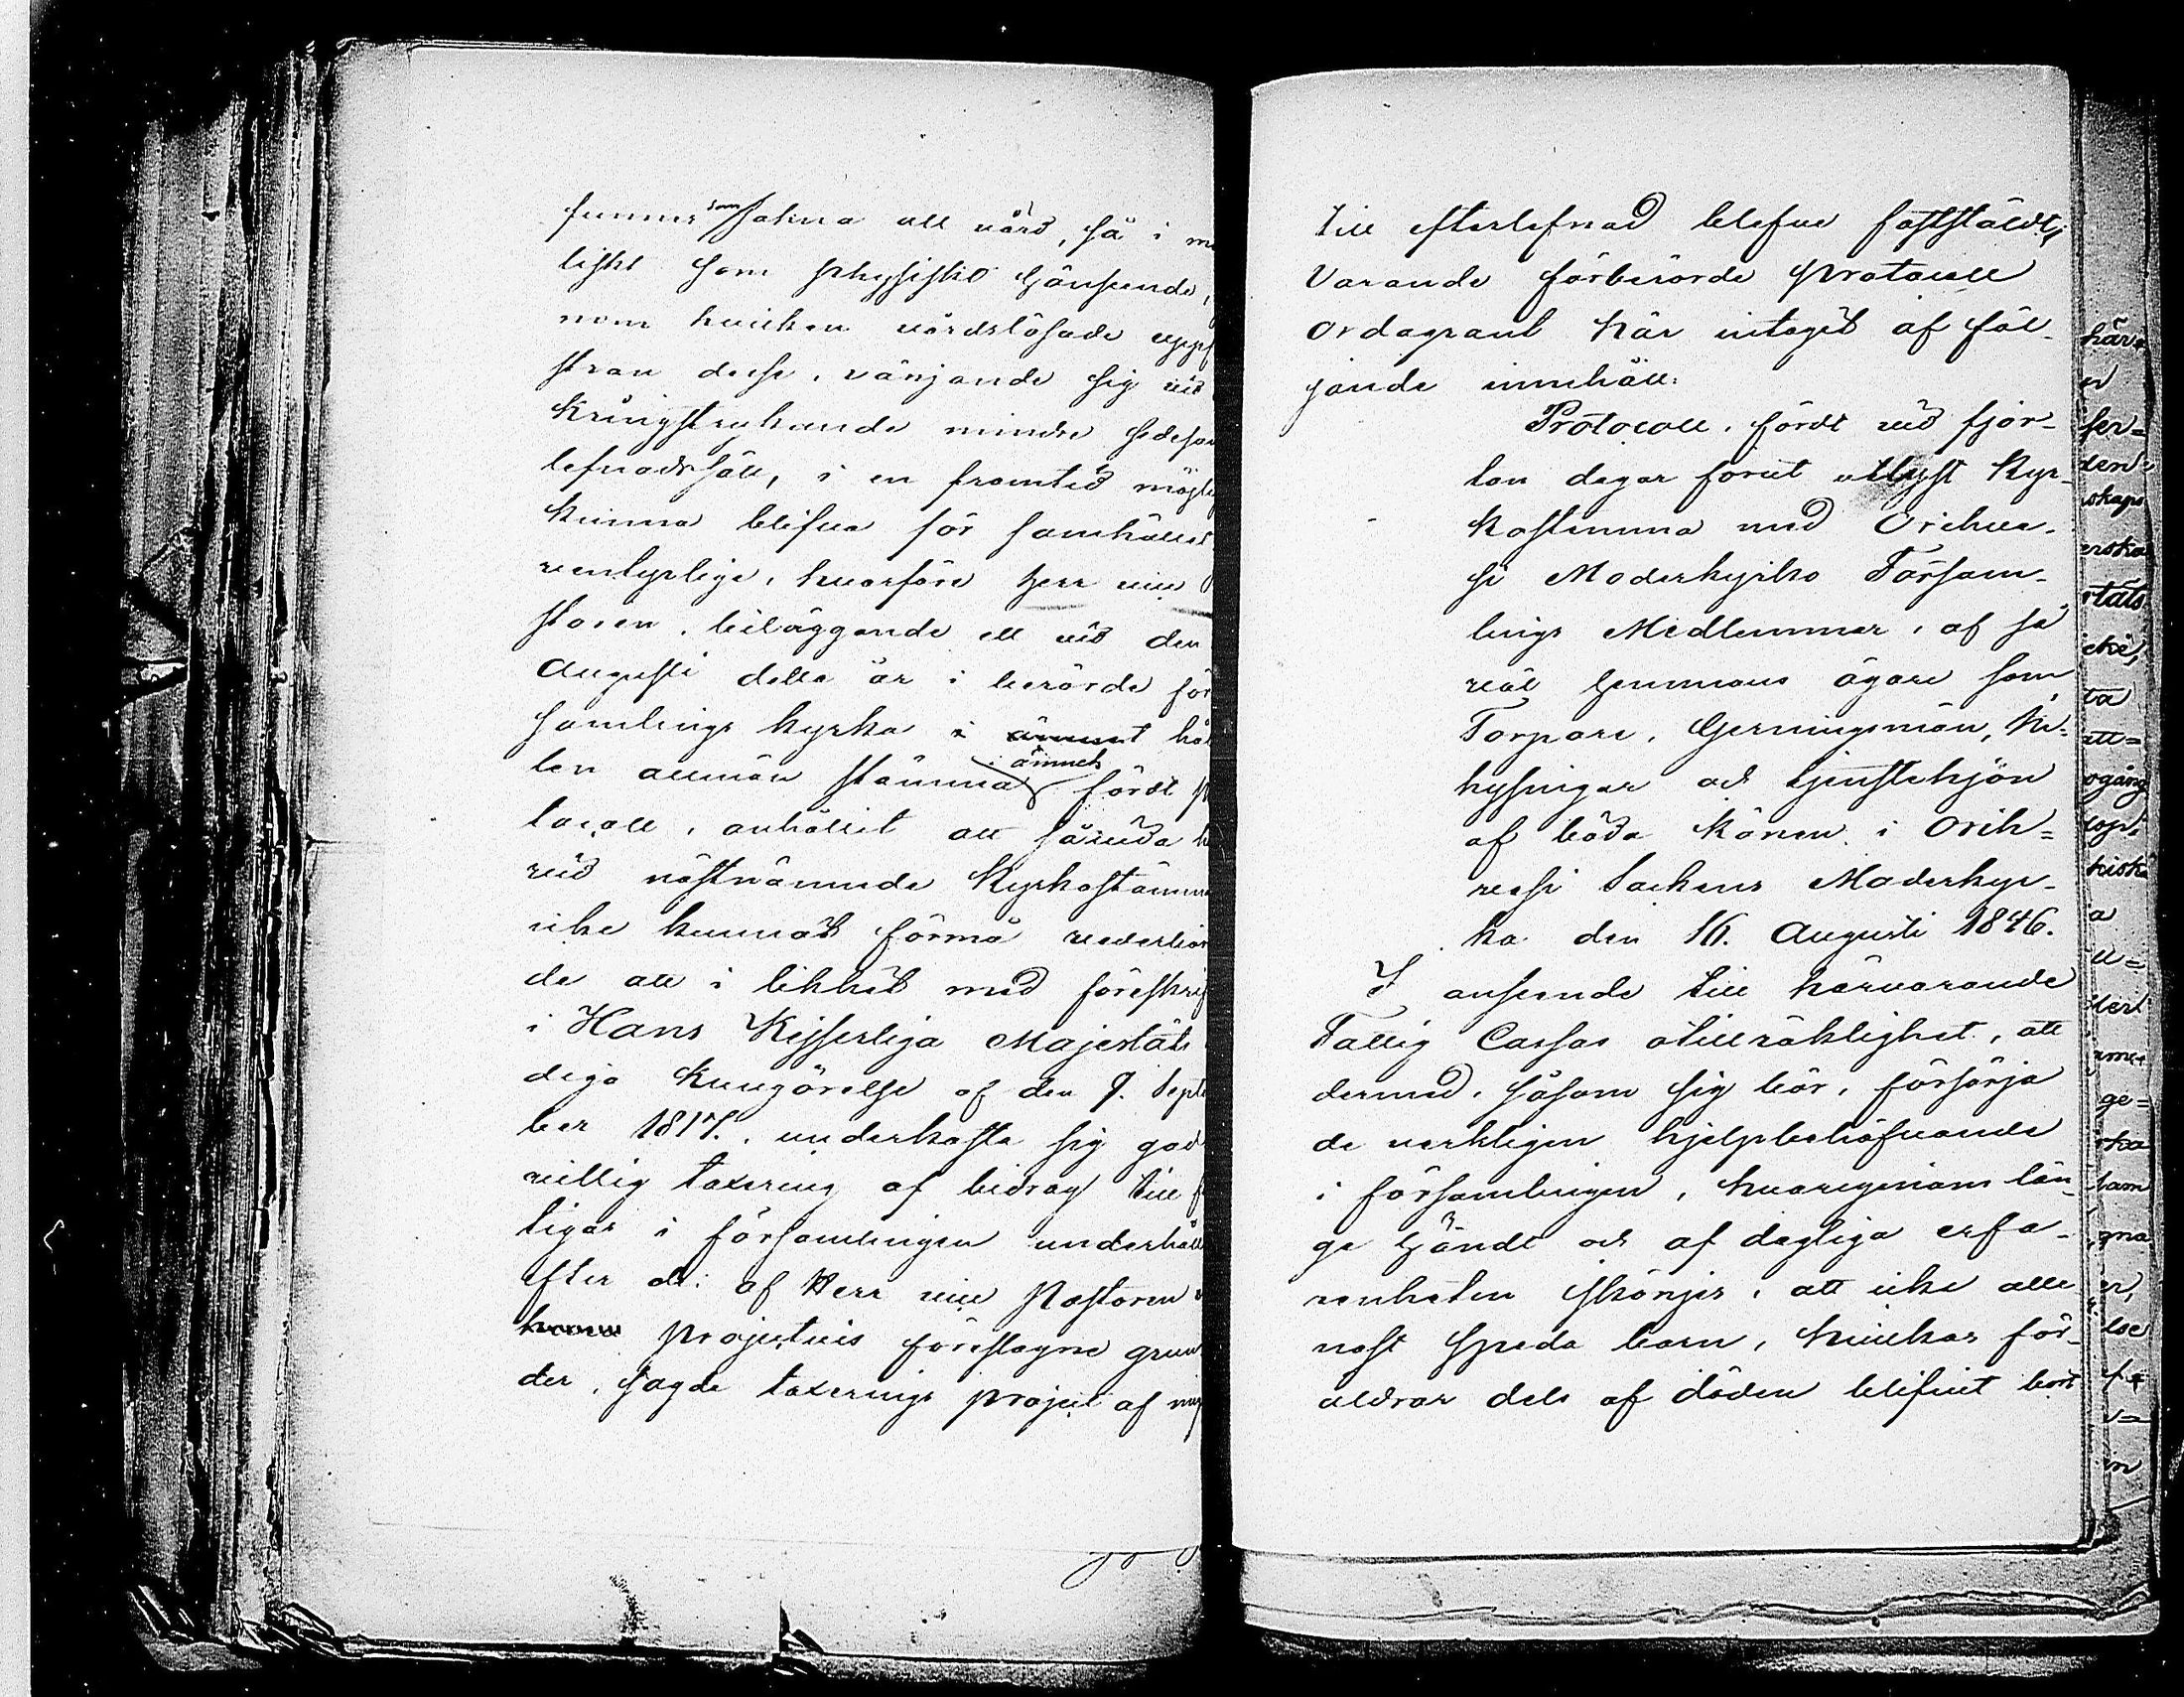 funnes som sakna all vård, så i mo
liskt som physiskt hänseende,
nom hvilken vårdslösade uppf
stran desse, vänjande sig vid
kringstrukande mindre sedesam
lefnadssätt, i en framtid möjli
kunna blifva för samhället
ventyrlige, hvarföre Herr vice
storen, beläggande ett vid den
Augusti detta år i berörde för
samlings kyrka i ämnet hål
len allmän stämma i ämnet fördt p
tocoll, anhållit att såvida h
vid nästnämnde Kyrkostämma
icke kunnat förmå vederbör
de att i likhet med föreskrif
i Hans Kejserliga Majestäts
diga Kungörelse af den 9. Septe
ber 1817. underkasta sig god
villig taxering af bidrag till f
tigas i församlingen underhåll
efter de: af Herr vice Pastoren
projectvis föreslagne grun
der, sagde taxerings project af mig
till efterlefnad blefve faststäldt,
Varande förberörde Protocoll
ordagrant här intaget af föl-
jande innehåll:
Protocoll, fördt vid fjor-
ton dagar förut utlyst Kyr-
kostemma med Orihve-
si Moderkyrko Försam-
lings Medlemmar, af så
väl hemmans ägare som
Torpare, Gerningsmän, In-
hysingar och tjenstehjon
af båda könen i Orih=
vesi Sockens Moderkyr-
ka den 16. Augusti 1846.
I anseende till härvarande
Fattig Cassas otillräklighet, att
dermed, såsom sig bör, försörja
de verkligen hjelpbehöfvande
i församlingen, hvarigenom län-
ge händt och af dagliga erfa-
renheten skönjes, att icke alle-
nast speda barn, hvilkas för-
äldrar dels af döden blifvit bort